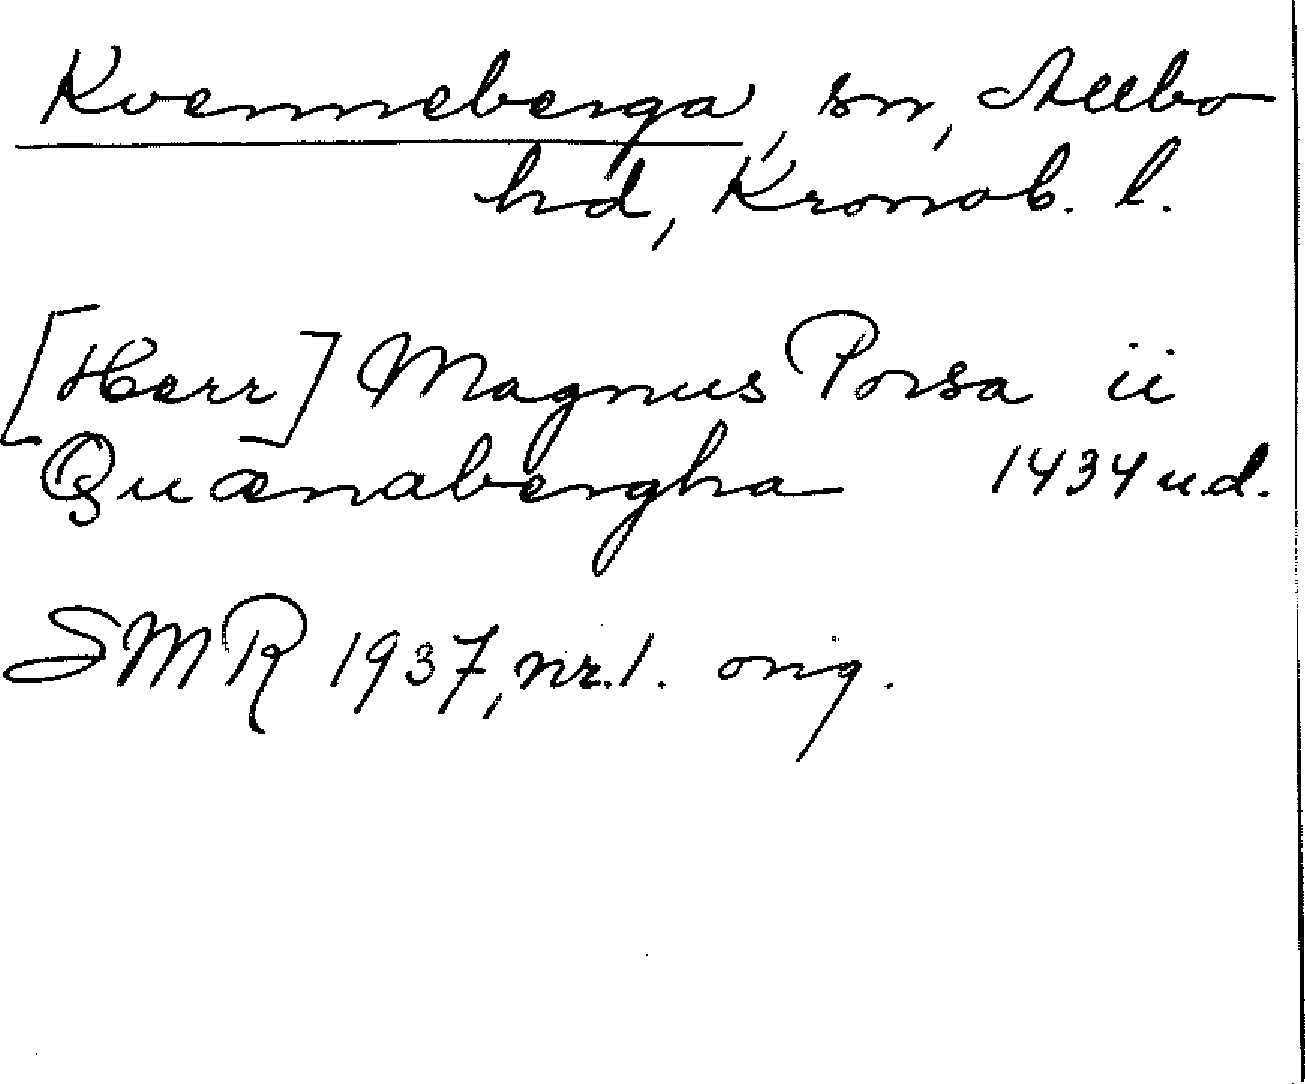 Kvenneberga, sn, Allbo
hd, Kronob. l.
[Herr] Magnus Porsa ii
Quænabergha 1434 u.d.
SMR 1937, nr. 1. orig.